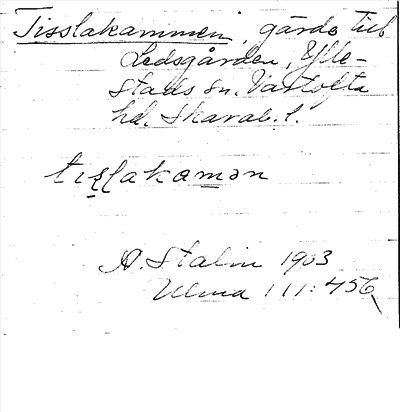 Tisslakammen, gärde till
Ledsgården, Ylle-
stads sn. Vartofta
hd. Skarab. l.
tisslakamən
A. Stalin 1903
Ulma 111:456